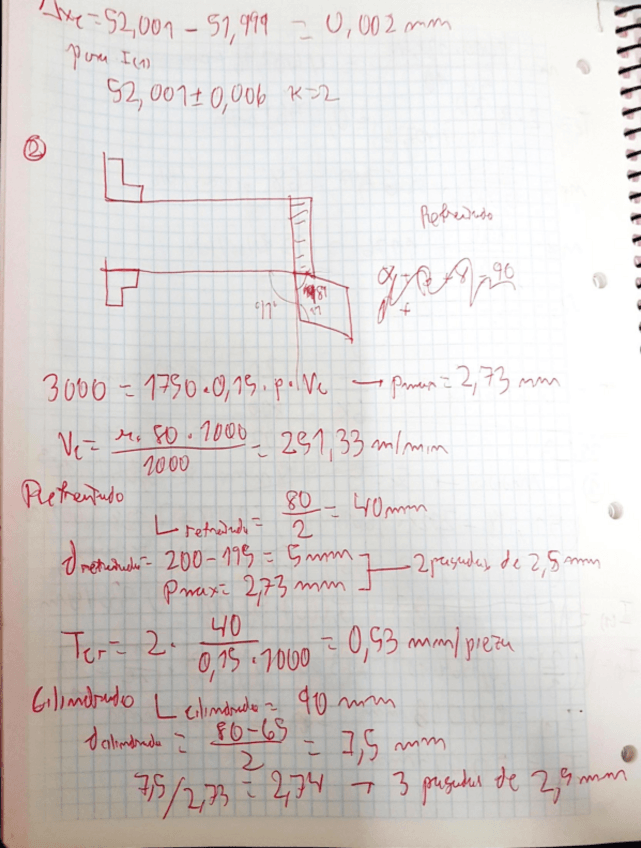 Δxc = 52,001 - 51,999 = 0,002 mm
para I(1)
52,001 ± 0,006 K=2
②
Refrentado
= 90
3000 = 1750 · 0,15 · p · Vc → pmax = 2,73 mm
Vc = π · 80 · 1000 / 1000 = 251,33 m/min
Refrentado
L refrentado = 80 / 2 = 40 mm
d refrentado = 200 - 195 = 5 mm
Pmax = 2,73 mm
2 pasadas de 2,5 mm
Tcr = 2 · 40 / 0,15 · 1000 = 0,53 mm/pieza
Cilindrado L cilindrado = 90 mm
d cilindrado = 80-65 / 2 = 7,5 mm
7,5/2,73 = 2,74 → 3 pasadas de 2,5 mm